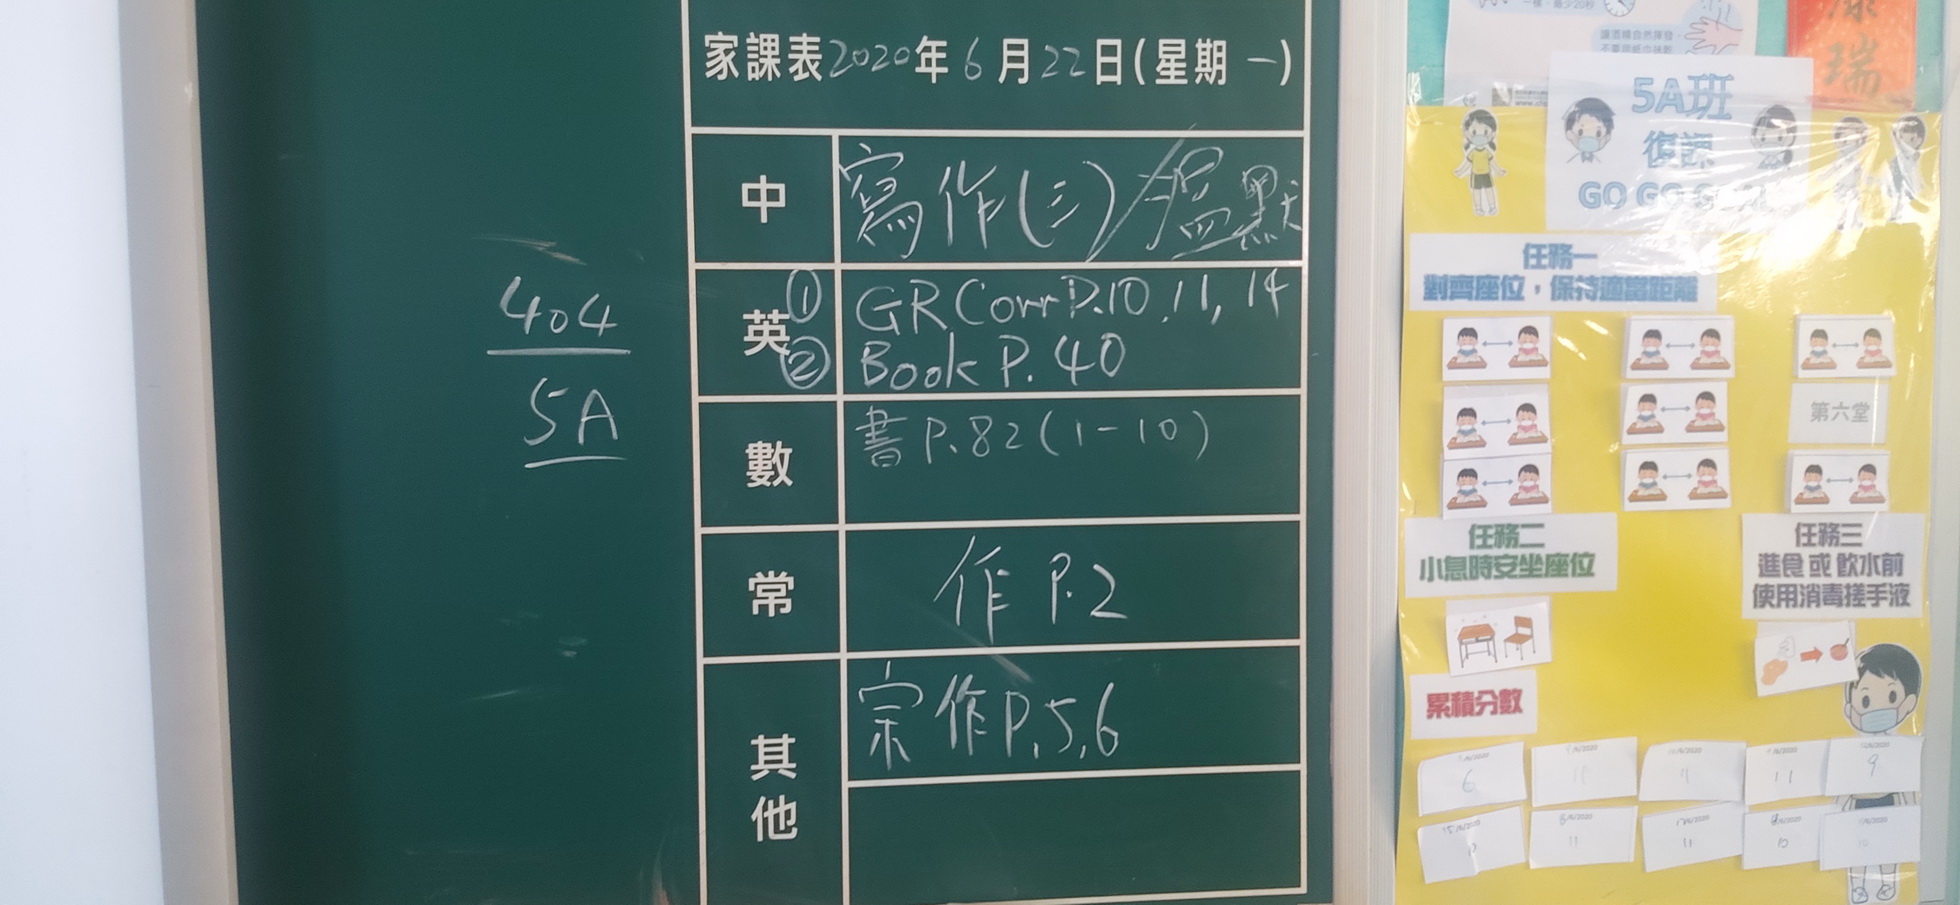 家課表2020年6月22日(星期一)
中
寫作(三)/溫默
英
① GR Corr P.10, 11, 14
② Book P. 40
數
書 P.82(1-10)
常
作 P.2
其他
宗作P.5,6
404
5A
5A班
復課
GO GO
任務一
對齊座位，保持適當距離
第六堂
任務二
小息時安坐座位
任務三
進食或飲水前
使用消毒搓手液
累積分數
6
11
9
11
11
10
瑞